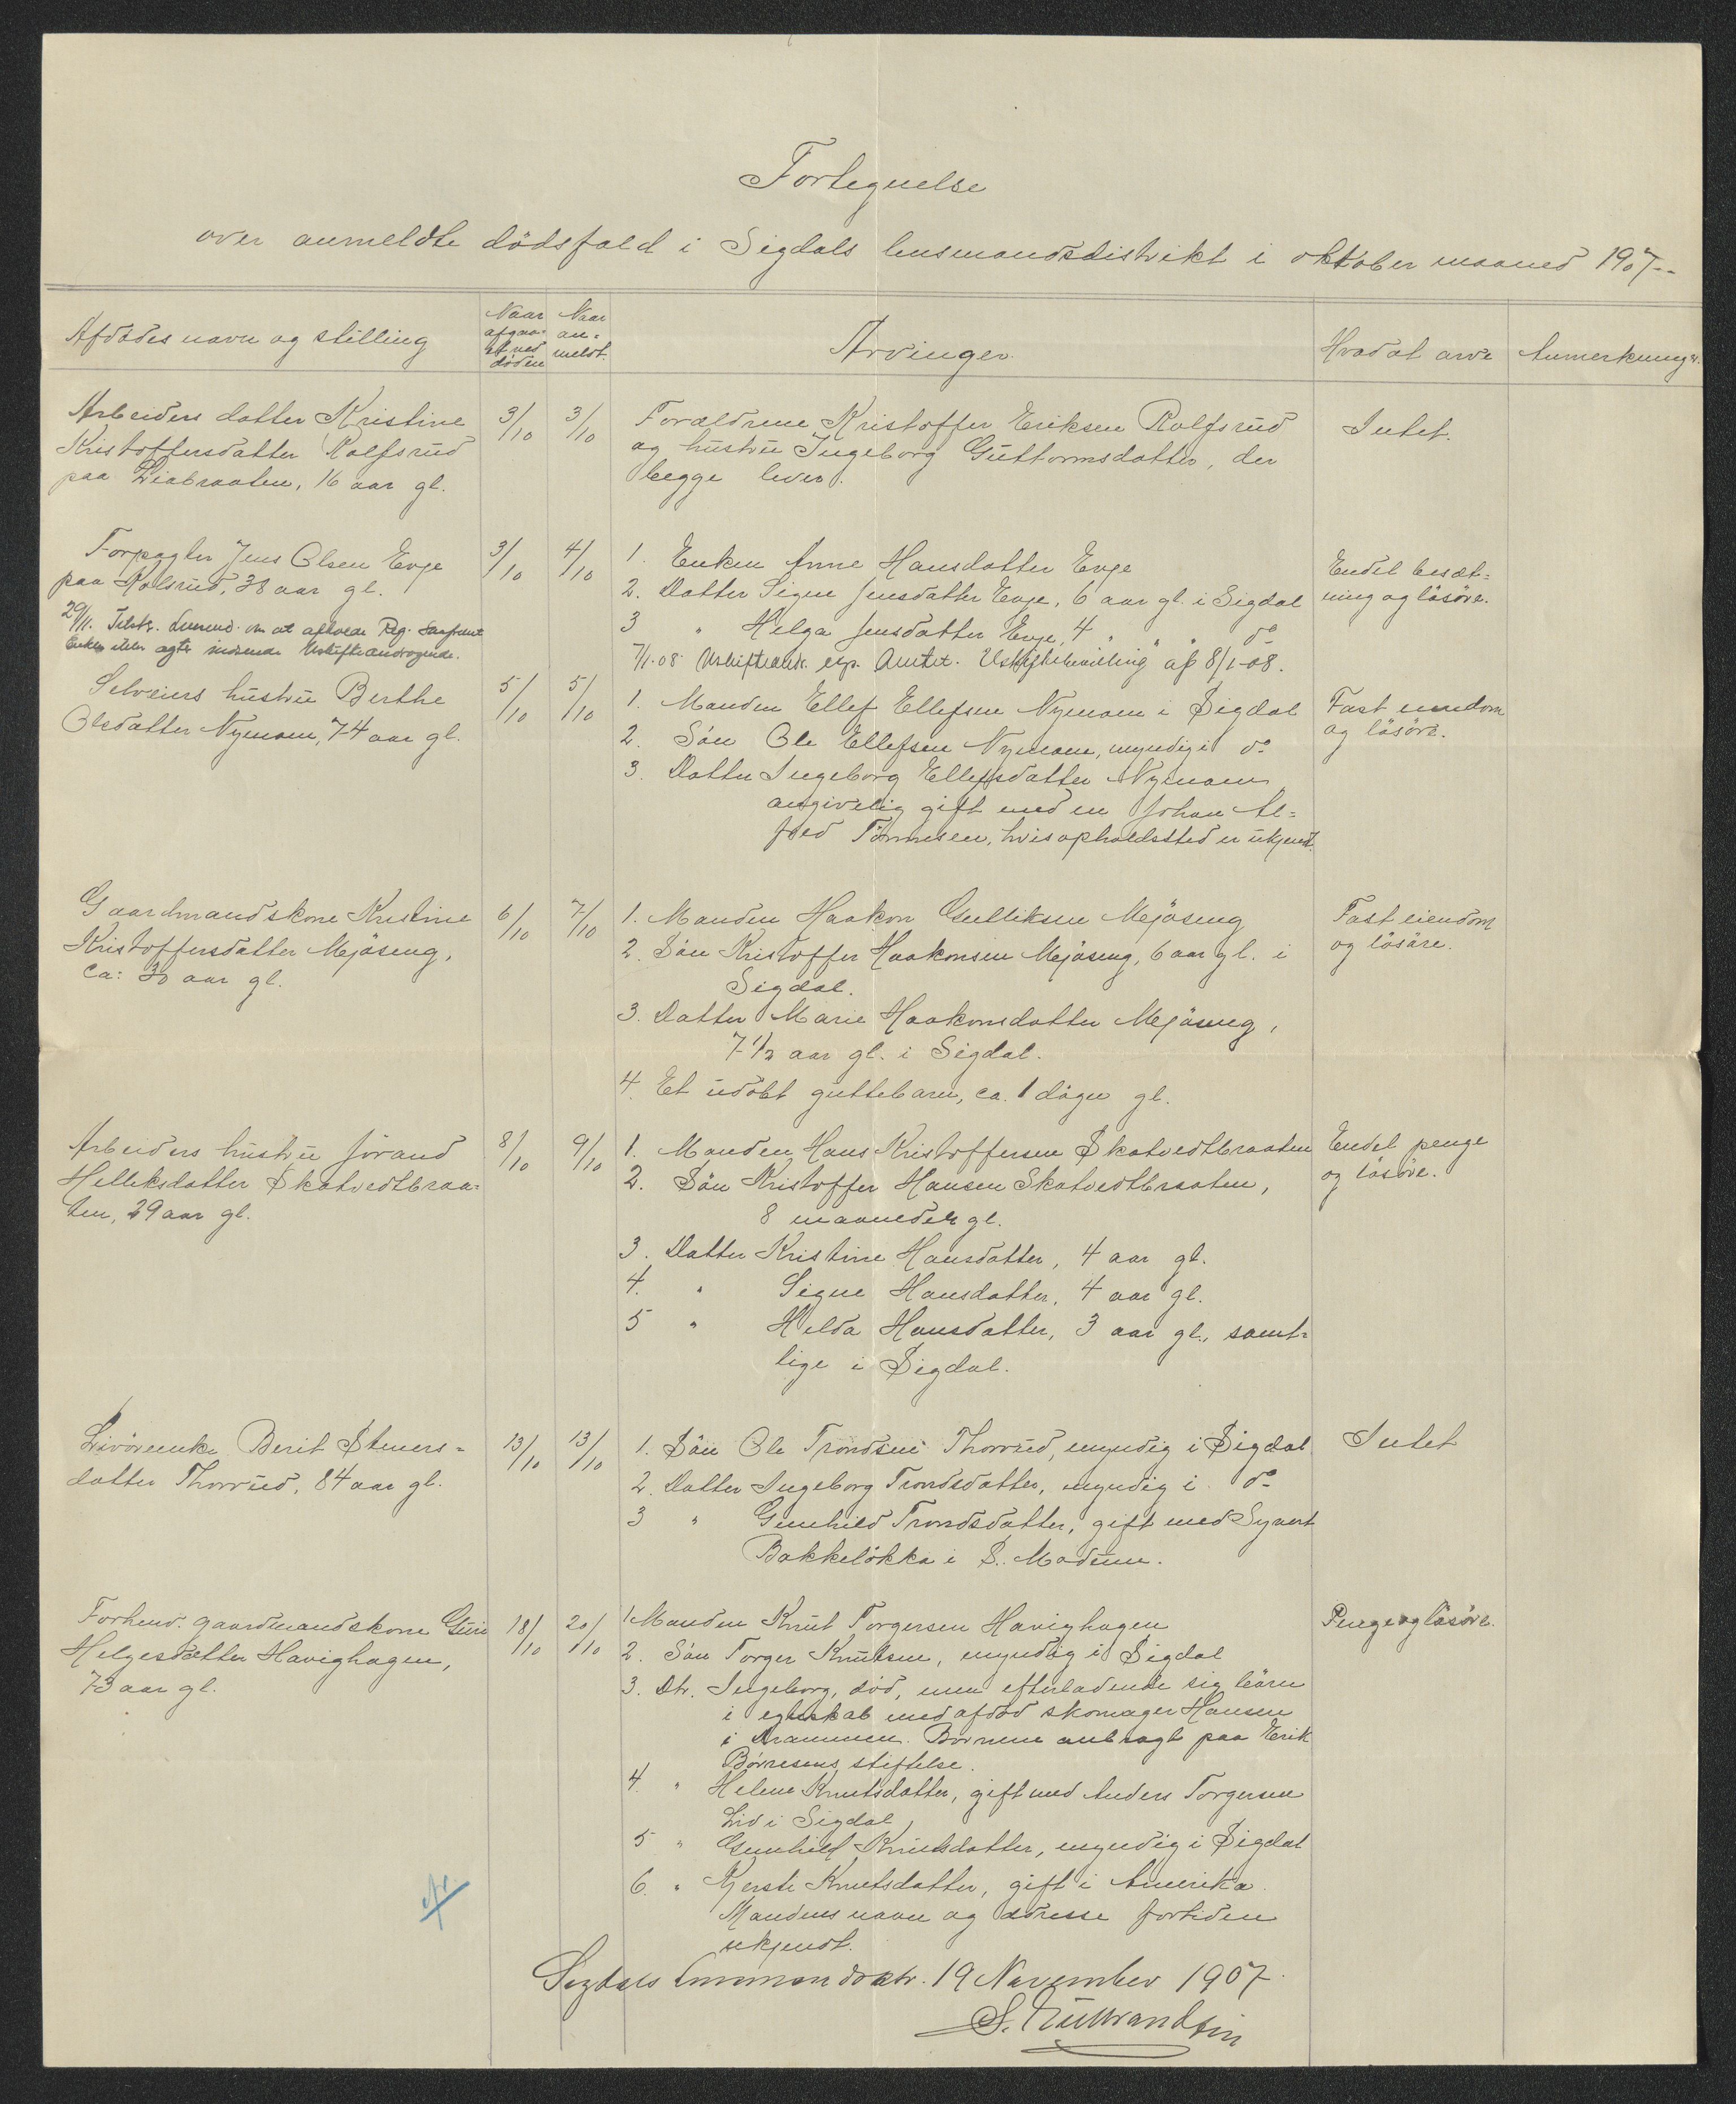 Fortegnelse
over anmeldte dödsfald i Sigdals lensmandsdistrikt i oktober maaned 1907.
Afdødes navn og stilling
Naar afgaaet ved døden
Naar anmeldt.
Arvinger.
Hvad at arve
Anmerkninger.
Arbeiders datter Kristine
Kristoffersdatter Rolfsrud
paa Liabraaten, 16 aar gl.
3/10
3/10
Forældrene Kristoffer Eriksen Rolfsrud
og hustru Ingeborg Guttormsdatter, der
begge lever.
Intet.
Forpagter Jens Olsen Evje
paa Kolsrud, 38 aar gl.
29/11. Tilskr. Lensmd. om at afkræve
Enken eller agter indsende Uskifteandragende.
3/10
4/10
1. Enken Anne Hansdatter Evje
2. Datter Signe Jensdatter Evje, 6 aar gl. i Sigdal
3 " Helga Jensdatter Evje, 4 " " " do
7/1-08 Uskifteandr. exp. Amtet. Uskiftebevilling af 8/1-08.
Endel besæt=
ning og lösöre.
Selveiers hustru Berthe
Olsdatter Nymoen, 74 aar gl.
5/10
5/10
1. Manden Ellef Ellefsen Nymoen i Sigdal
2. Sön Ole Ellefsen Nymoen, myndig i do
3. Datter Ingeborg Ellefsdatter Nymoen
angivelig gift med en Johan Al=
fred Tönnesen, hvis opholdssted er ukjendt.
Fast eiendom
og lösöre.
Gaardmandskone Kristine
Kristoffersdatter Mejöseng,
ca: 30 aar gl.
6/10
7/10
1. Manden Haakon Gulliksen Mejöseng
2. Sön Kristoffer Haakonsen Mejöseng, 6 aar gl. i
Sigdal.
3. Datter Marie Haakonsdatter Mejöseng,
7 1/2 aar gl. i Sigdal.
4. Et udöbt guttebarn, ca. 1 dögn gl.
Fast eiendom
og lösöre.
Arbeiders hustru Jörand
Helleksdatter Skatvedtbraa=
ten, 29 aar gl.
8/10
9/10
1. Manden Hans Kristoffersen Skatvedtbraaten
2. Sön Kristoffer Hansen Skatvedtbraaten,
8 maaneder gl.
3. Datter Kristine Hansdatter, 4 aar gl.
4. " Signe Hansdatter, 4 aar gl.
5 " Helda Hansdatter, 3 aar gl., samt=
lige i Sigdal.
Endel penge
og lösöre.
Livöreenke Berit Steners=
datter Thorrud, 84 aar gl.
13/10
13/10
1. Sön Ole Trondsen Thorrud, myndig i Sigdal
2. Datter Ingeborg Trondsdatter, myndig i do
3 " Gunhild Trondsdatter, gift med Syvert
Bakkelökka i S. Modum.
Intet
Forhenv. gaardmandskone Guri
Helgesdatter Havighagen,
73 aar gl.
18/10
20/10
1. Manden Knut Torgersen Havighagen
2. Sön Torger Knutsen, myndig i Sigdal
3. Dtr. Ingeborg, död, men efterladende sig börn
i egteskab med afdöd skomager Hansen
i Drammen. Börnene anbragt paa Erik
Börresens stiftelse.
4. " Helene Knutsdatter, gift med Anders Torgersen
Lid i Sigdal
5 " Gunhild Knutsdatter, myndig i Sigdal
6. " Kjersti Knutsdatter, gift i Amerika.
Mandens navn og adresse fortiden
ukjendt.
Penge og lösöre.
Sigdals lensmandsktr. 19 November 1907.